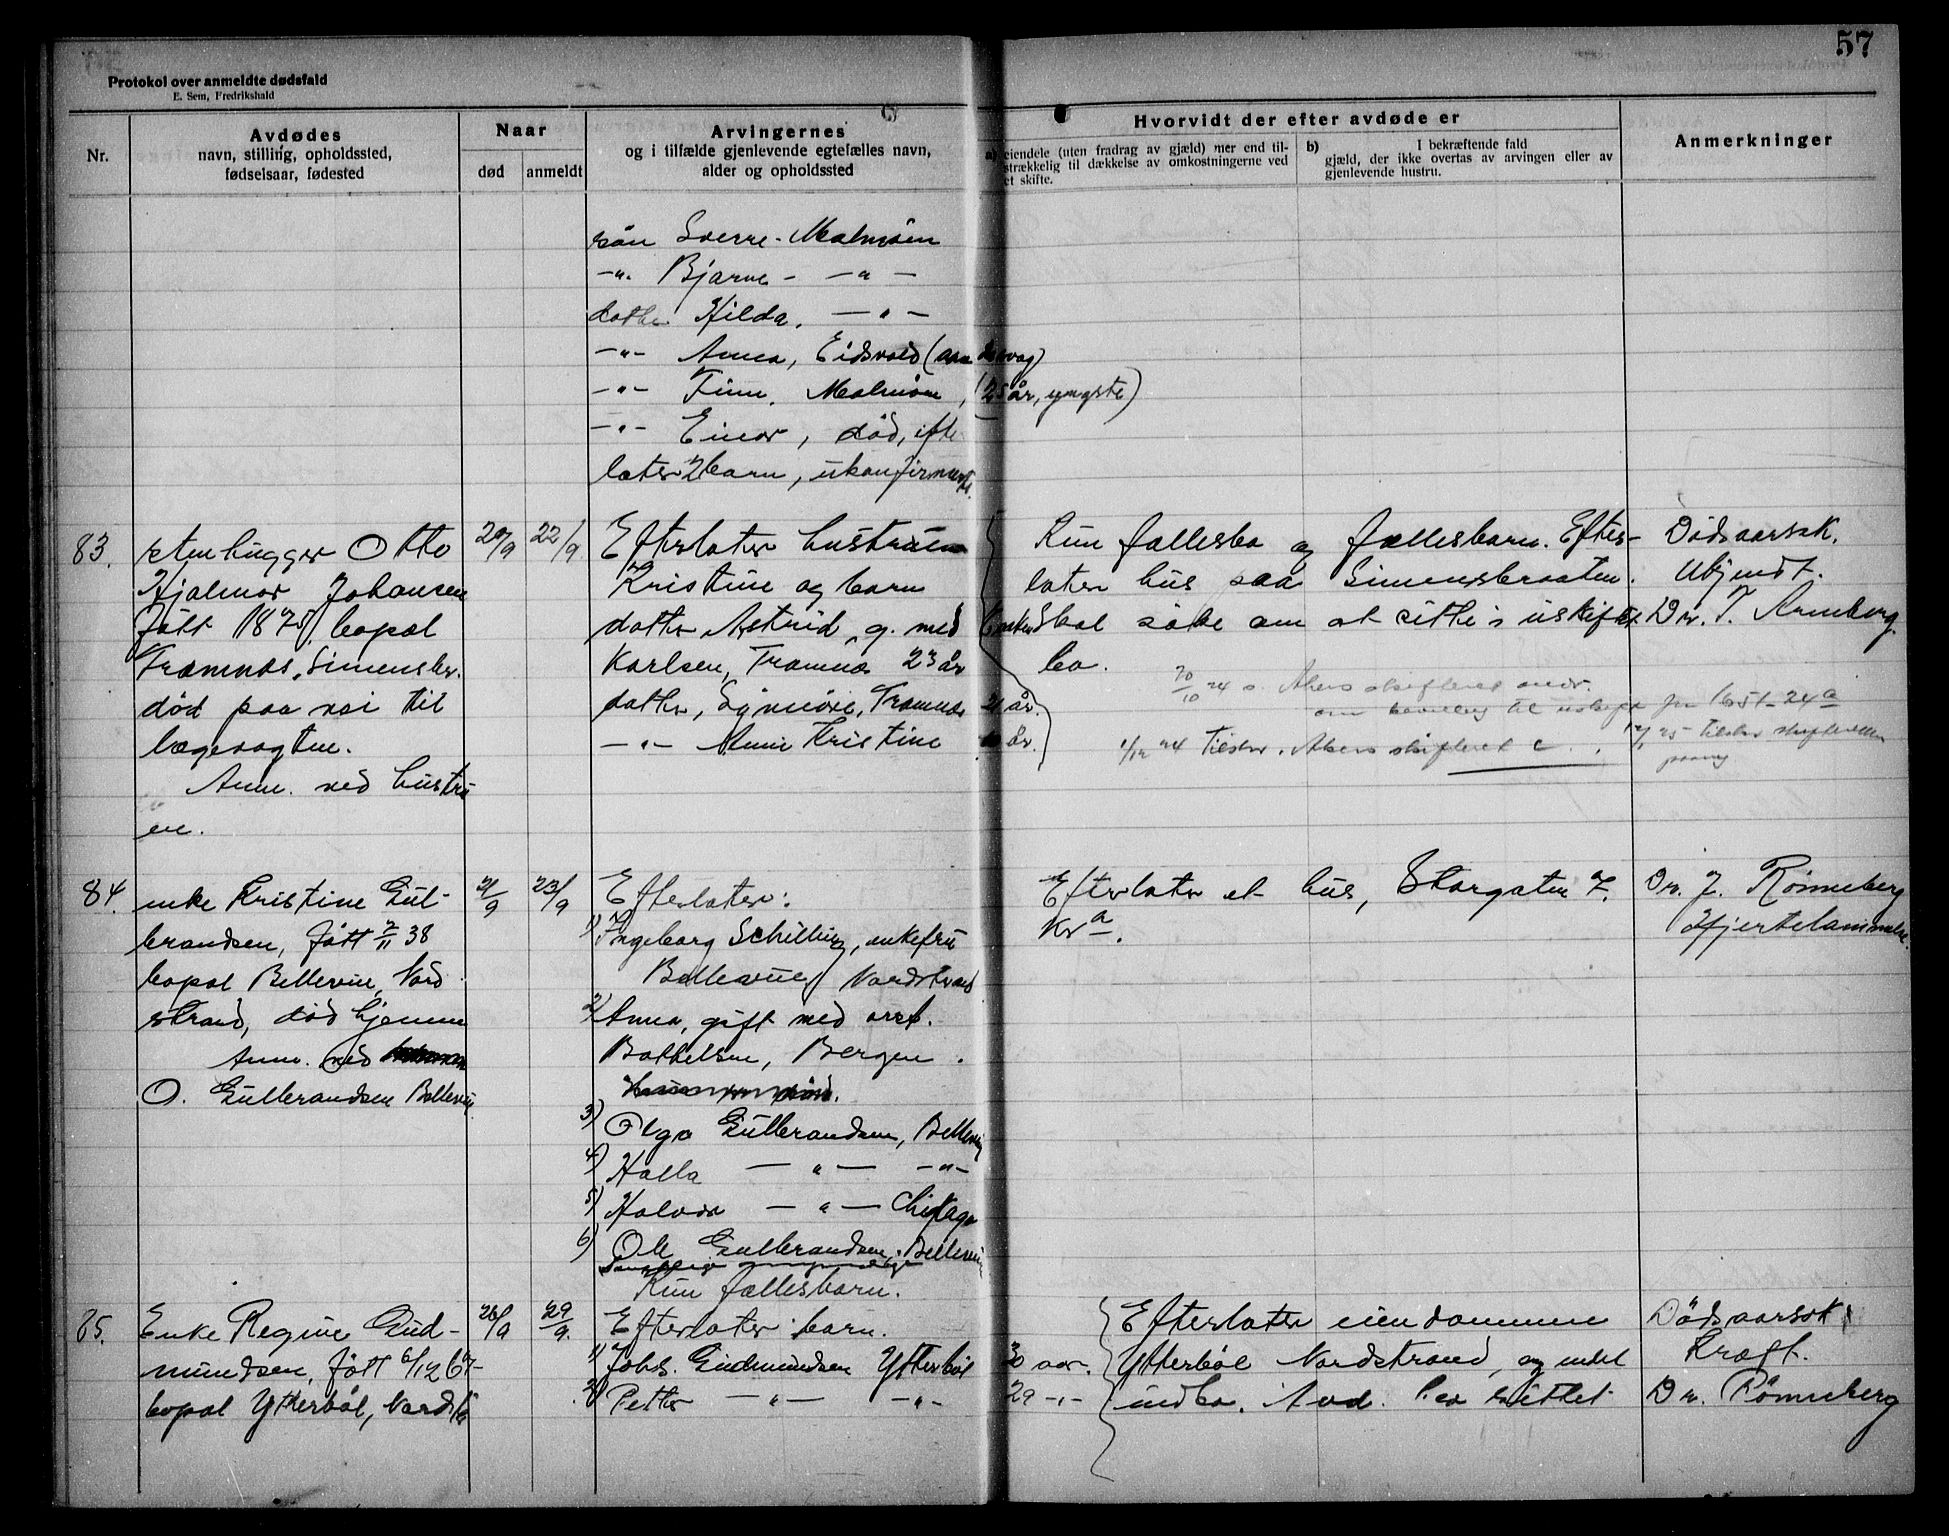 57
Protokol over anmeldte dødsfald
E. Sem, Fredrikshald
Nr.
Avdødes
navn, stilling, opholdssted,
fødselsaar, fødested
Naar
død
anmeldt
Arvingernes
og i tilfælde gjenlevende egtefælles navn,
alder og opholdssted
Hvorvidt der efter avdøde er
a) eiendele (uten fradrag av gjæld) mer end til-
strækkelig til dækkelse av omkostningerne ved
et skifte.
b) I bekræftende fald
gjæld, der ikke overtas av arvingen eller av
gjenlevende hustru.
Anmerkninger
søn Sverre - Malmøen
-"- Bjarne - - " -
datter Hilda, - " -
-"- Anna, Eidsvold
-"- Finn, Malmøen, (25 år, yngste)
-"- Einar, død, efter
later 2 barn, ukonfirmerte.
83.
stenhugger Otto
Hjalmar Johansen
født 1875, bopæl
Framnæs, Simensbr.
død paa vei til
lægevagten.
Anm. ved hustru
en.
20/9
22/9
Efterlater hustruen
Kristine og barn
datter Astrid, g. med
Karlsen, Framnæs 23 år
datter, Synnøve, Framnæs 21 år.
-"- Anne Kristine år.
Kun fællesbo og fællesbarn. Efter-
later hus paa Simensbraaten.
Skal søke om at sitte i uskiftet
bo.
30/10 24 s. Akers skifteret
om bevilling til uskifte 1651-24
1/12 24 Tilskr. Akers skifteret
Dødsaarsak.
Ukjendt.
Dr. T. Arneberg.
84.
enke Kristine Gul-
brandsen, født 2/11 38
bopæl Bellevue, Nord
strand, død hjemme
Anm. ved
O. Gulbrandsen Bellevue
21/9
23/9
Efterlater:
1) Ingeborg Schilling, enkefru
Bellevue, Nordstrand
2) Anna, gift med
Bothelsen, Bergen.
3) Olga Gulbrandsen, Bellevue
4) Halla - " - -"-
5) Halvor - " - Chikago
6) Ole Gulbrandsen, Bellevue
Kun fællesbarn.
Efterlater et hus, Storgaten 7.
Kr a.
Dr. J. Rønneberg
Hjertelammelse.
85.
Enke Regine Gud-
mundsen, født 6/12 67
bopæl Ytterbøl, Nordstr
26/9
29/9.
Efterlater barn.
1) Johs. Gudmundsen Ytterbøl 30 aar.
2) Petter - " - -"- 29 -"-
Efterlater eiendommen
Ytterbøl Nordstrand, og endel
indbo. Avd. har sittet
Dødsaarsak
Kræft.
Dr. Rønneberg